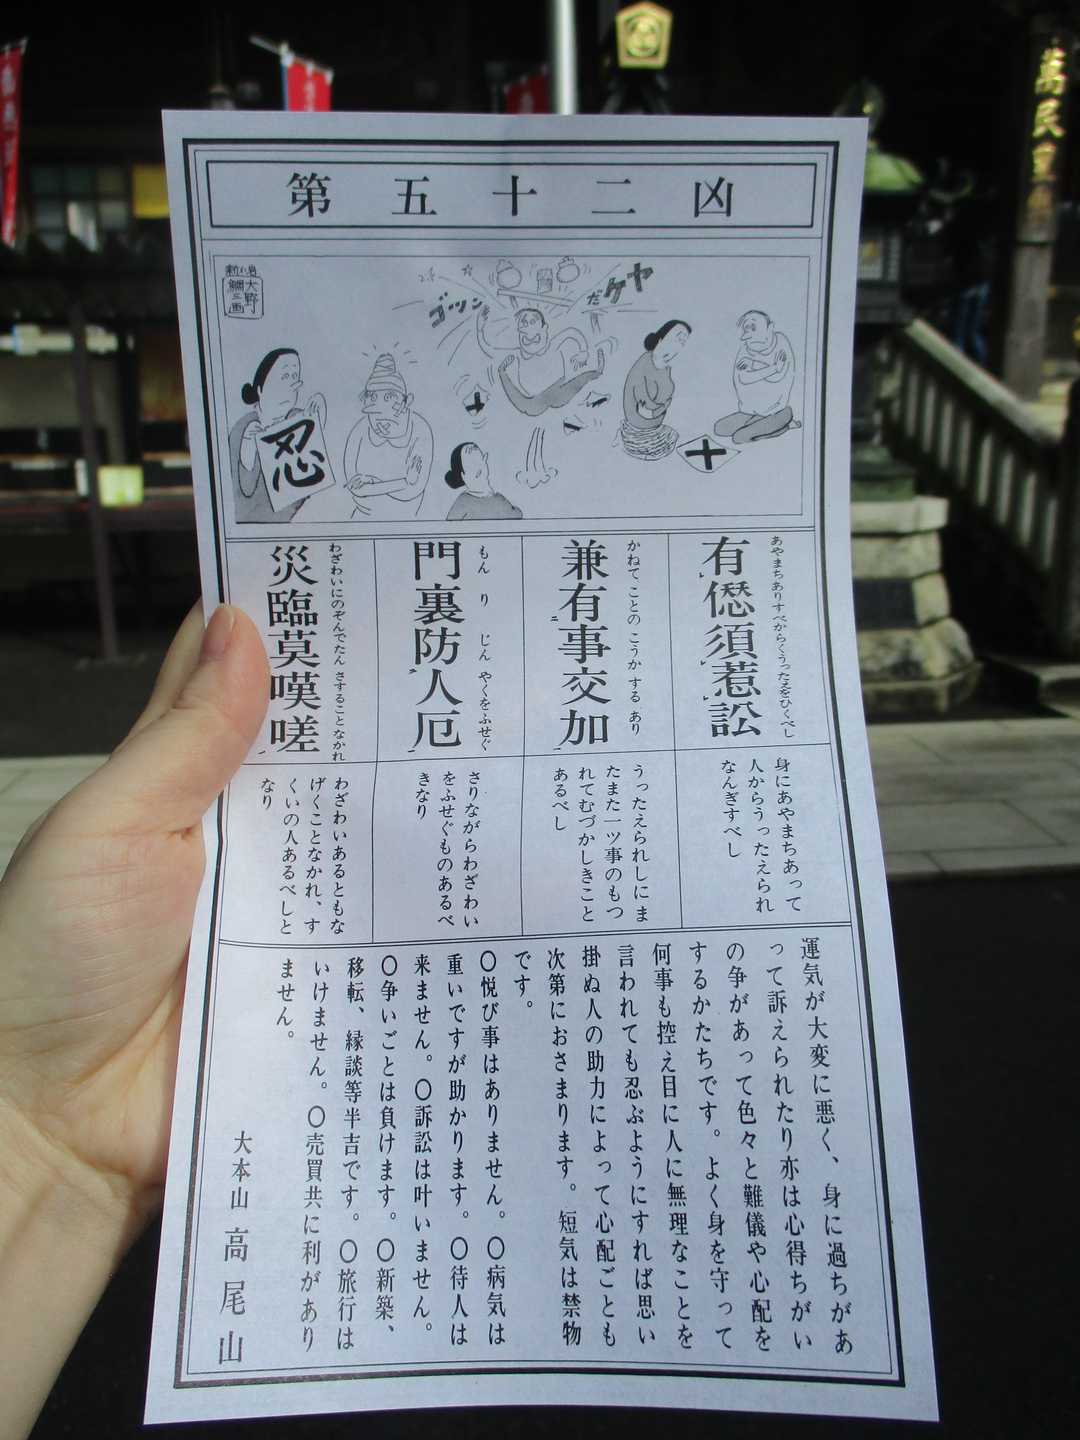 第五十二凶
大野
鯛三画
ゴツン
だケヤ
忍
十
あやまちありすべからくうったえをひくべし
有愆須惹訟
身にあやまちあって
人からうったえられ
なんぎすべし
かねてことのこうかするあり
兼有事交加
うったえられしにま
たまた一ツ事のもつ
れてむづかしきこと
あるべし
もんりじんやくをふせぐ
門裏防人厄
さりながらわざわい
をふせぐものあるべ
きなり
わざわいにのぞんでたんさすることなかれ
災臨莫嘆嗟
わざわいあるともな
げくことなかれ、す
くいの人あるべしと
なり
運気が大変に悪く、身に過ちがあ
って訴えられたり亦は心得ちがい
の争があって色々と難儀や心配を
するかたちです。よく身を守って
何事も控え目に人に無理なことを
言われても忍ぶようにすれば思い
掛ぬ人の助力によって心配ごとも
次第におさまります。短気は禁物
です。
〇悦び事はありません。〇病気は
重いですが助かります。〇待人は
来ません。〇訴訟は叶いません。
〇争いごとは負けます。〇新築、
移転、縁談等半吉です。〇旅行は
いけません。〇売買共に利があり
ません。
大本山 高尾山
萬民豊